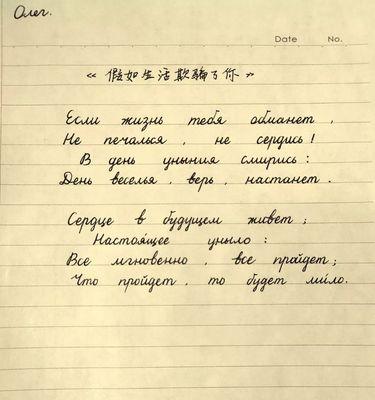 Олег.
Date No.
《假如生活欺骗了你》
Если жизнь тебя обманет,
Не печалься, не сердись!
В день уныния смирись:
День веселья, верь, настанет.
Сердце в будущем живет;
Настоящее уныло:
Все мгновенно, все пройдет;
Что пройдет, то будет мило.